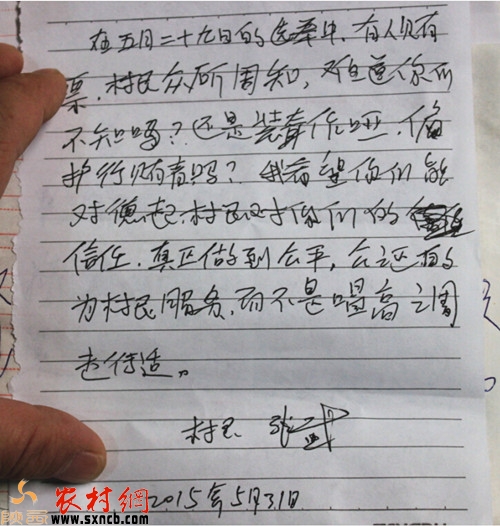 在五月二十九日的选举中,有人贿
票,村民众所周知,难道你们
不知吗?还是装聋作哑,偏
护行贿者吗?我希望你们能
对德起,村民对你们的
信任,真正做到公平,公正的
为村民服务,而不是唱高
走行
村民 张
2015年5月31日
陕西 农村網
www.sxncb.com